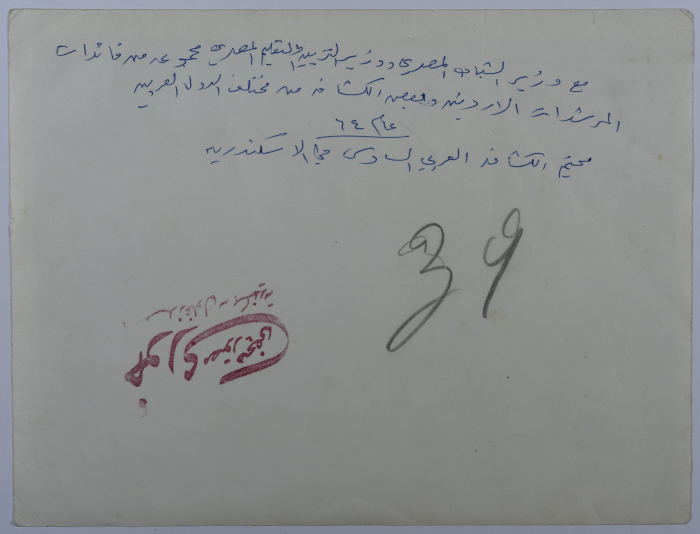 مع وزير الشباب المصري ووزير التربية والتعليم المصري مجموعة من قائدات
المرشدات الاردنية وبعض الكشافة من مختلف الدول العربية
عام ٦٤
مخيم الكشافة العربي السادس في الاسكندرية
39
فوزي